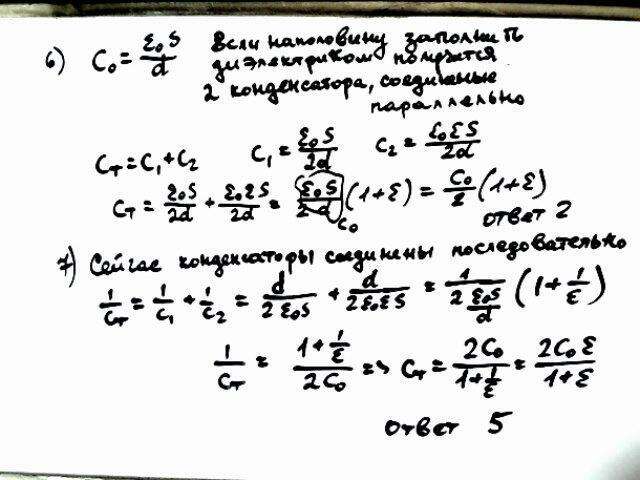 6) C₀ = ε₀S/d Если наполовину заполнить
диэлектриком получится
2 конденсатора, соединеные
параллельно
Cт = C₁ + C₂ C₁ = ε₀S/2d C₂ = ε₀εS/2d
Cт = ε₀S/2d + ε₀εS/2d = ε₀S/2d (1+ε) = C₀/2 (1+ε)
C₀ ответ 2
7) Сейчас конденсаторы соединены последовательно
1/Cт = 1/C₁ + 1/C₂ = d/2ε₀S + d/2ε₀εS = 1/(2 ε₀S/d) (1 + 1/ε)
1/Cт = (1 + 1/ε)/2C₀ => Cт = 2C₀/(1 + 1/ε) = 2C₀ε/(1+ε)
ответ 5